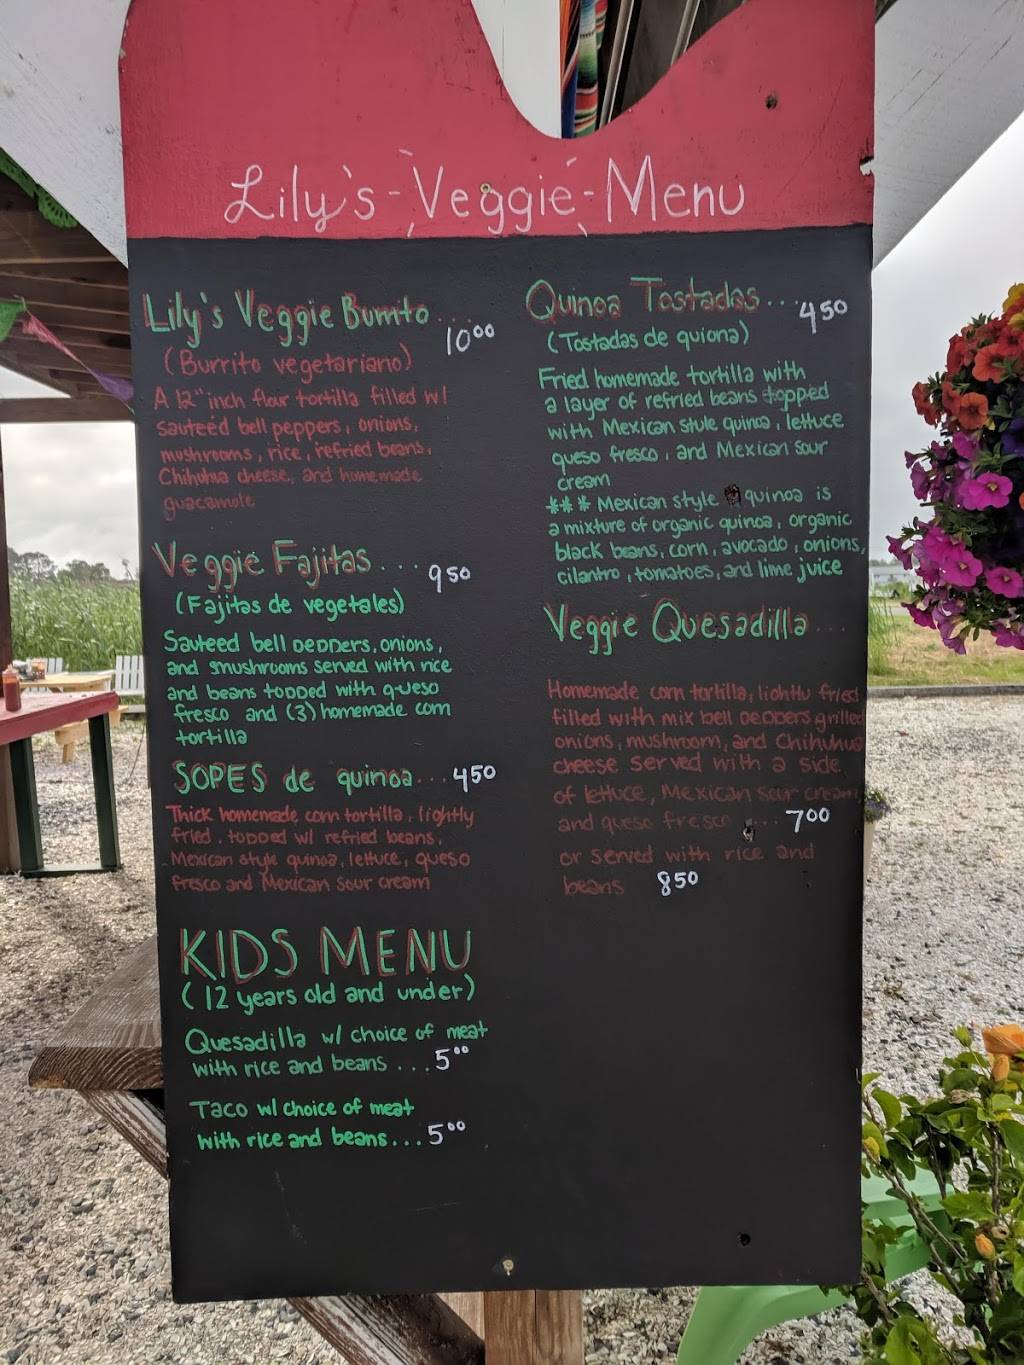 Lily's - Veggie - Menu
Lily's Veggie Burrito ... 10⁰⁰
(Burrito vegetariano)
A 12" inch flour tortilla filled w/
sauteéd bell peppers, onions,
mushrooms, rice, refried beans,
Chihuhua cheese, and homemade
guacamole
Veggie Fajitas ... 9⁵⁰
(Fajitas de vegetales)
Sauteed bell peppers, onions,
and smushrooms served with rice
and beans topped with queso
fresco and (3) homemade corn
tortilla
SOPES de quinoa ... 4⁵⁰
Thick homemade corn tortilla, lightly
fried, topped w/ refried beans,
Mexican style quinoa, lettuce, queso
fresco and Mexican sour cream
KIDS MENU
(12 years old and under)
Quesadilla w/ choice of meat
with rice and beans ... 5⁰⁰
Taco w/ choice of meat
with rice and beans ... 5⁰⁰
Quinoa Tostadas ... 4⁵⁰
(Tostadas de quiona)
Fried homemade tortilla with
a layer of refried beans topped
with Mexican style quinoa, lettuce
queso fresco, and Mexican sour
cream
*** Mexican style quinoa is
a mixture of organic quinoa, organic
black beans, corn, avocado, onions,
cilantro, tomatoes, and lime juice
Veggie Quesadilla ...
Homemade corn tortilla, lightly fried
filled with mix bell peppers grilled
onions, mushroom, and Chihuhua
cheese served with a side
of lettuce, Mexican sour cream
and queso fresco ... 7⁰⁰
or served with rice and
beans 8⁵⁰